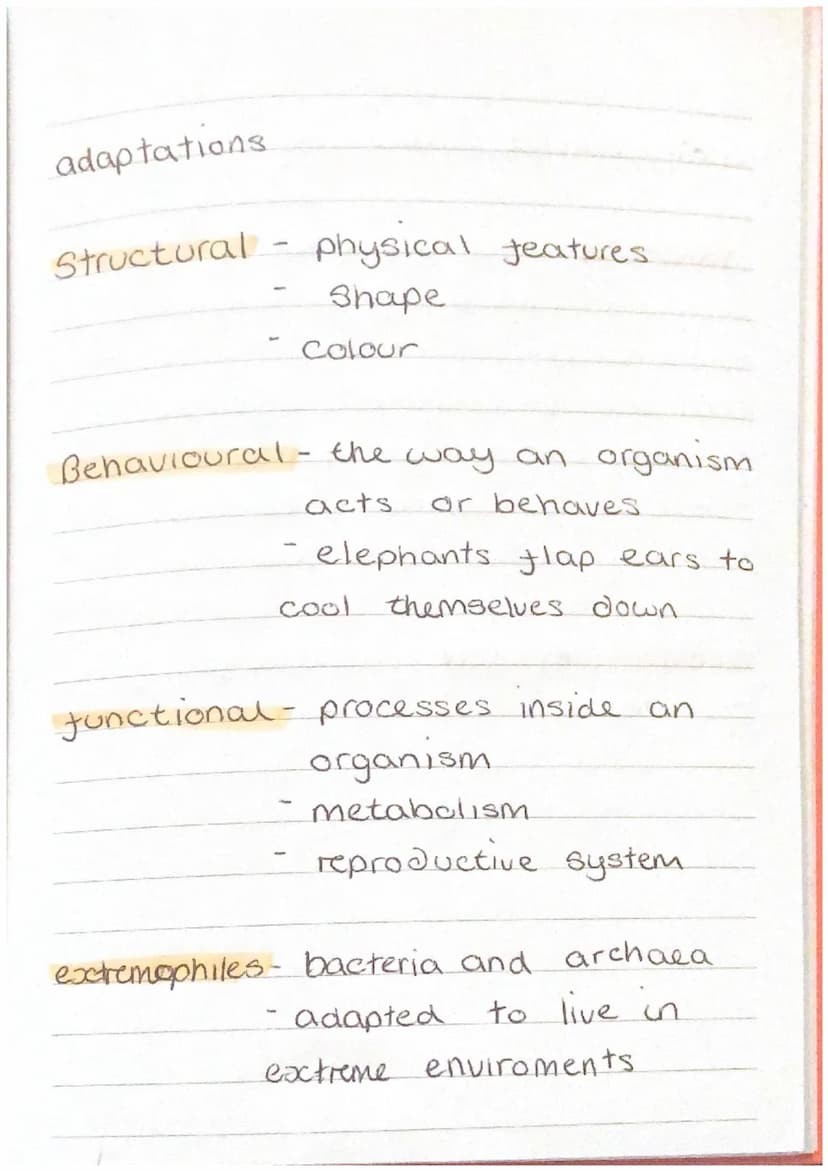 adaptations
Structural - physical features
- Shape
- Colour
Behavioural - the way an organism
acts or behaves
- elephants flap ears to
cool themselves down
functional - processes inside an
organism
- metabolism
- reproductive system
extremophiles - bacteria and archaea
- adapted to live in
extreme enviroments